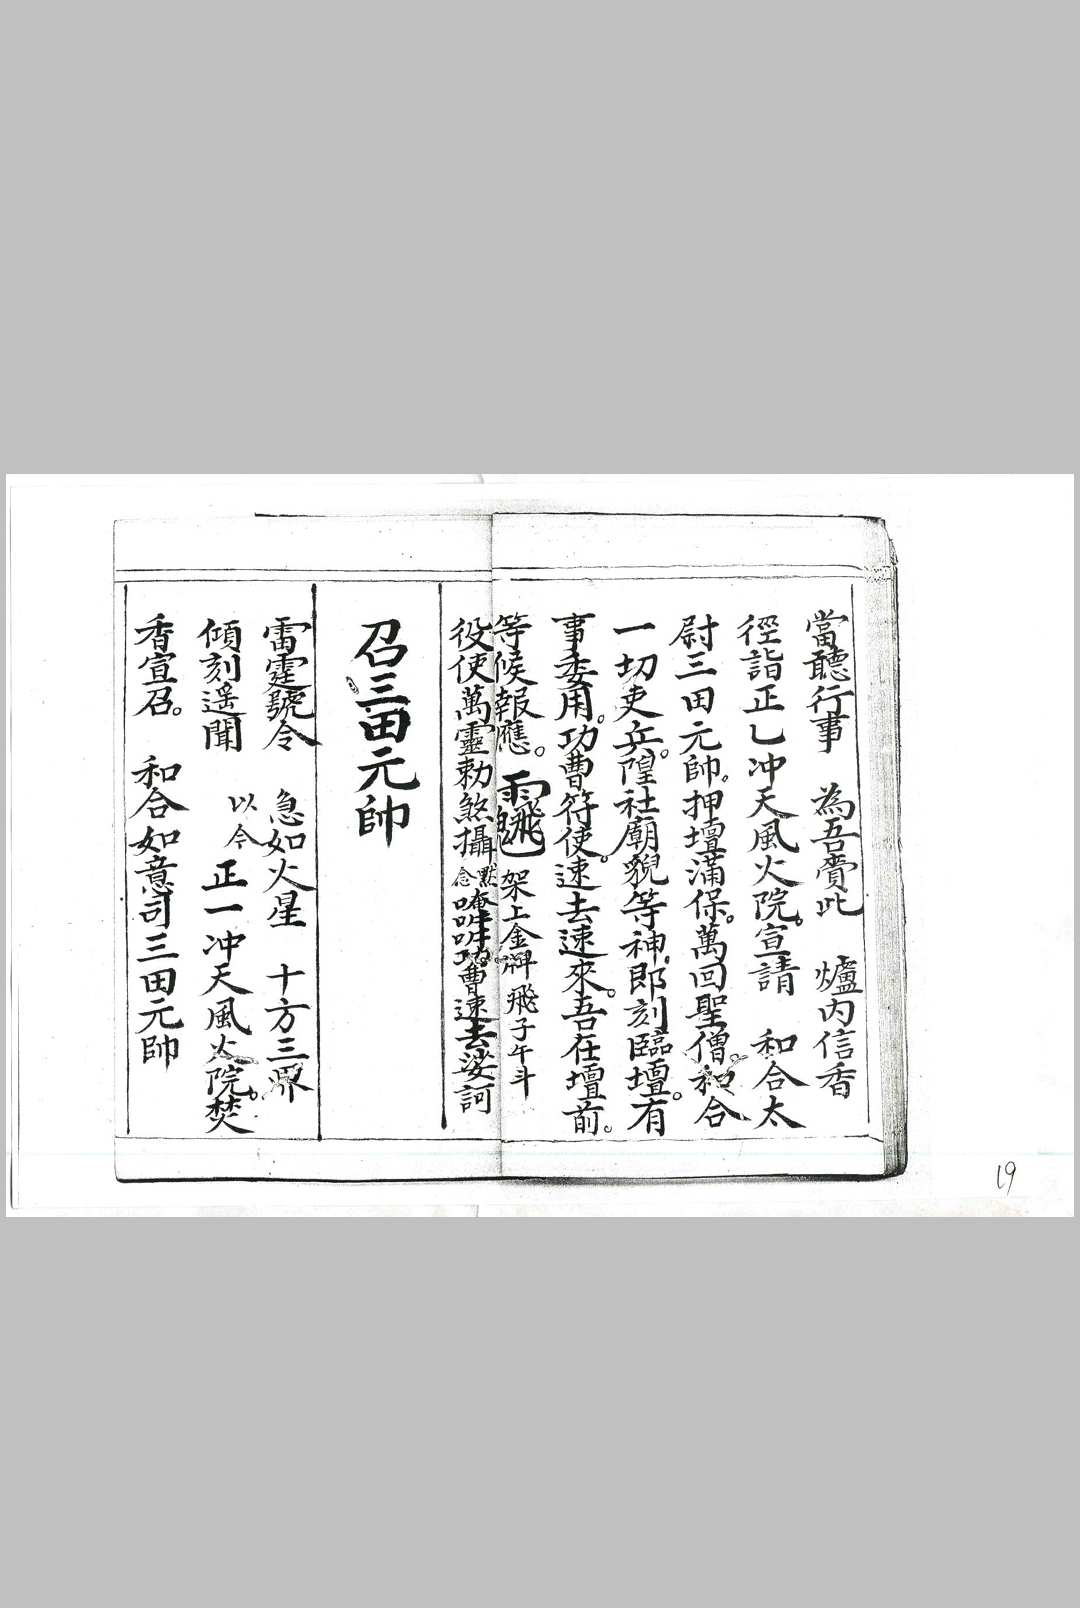 當聽行事　為吾賫此　爐內信香
徑詣正乚冲天風火院。宣請　和合太
尉三田元帥。押壇滿保。萬回聖僧。和合
一切吏兵。隍社廟貌等神。即刻臨壇。有
事委用。功曹符使。速去速來。吾在壇前。
等候報應。 架上金牌飛子午斗
役使萬靈勅煞攝 默念 唵吽吽功曹速去娑訶
召三田元帥
雷霆號令　急如火星　十方三界
傾刻遥聞　以令　正一冲天風火院。焚
香宣召。　和合如意司三田元帥
19